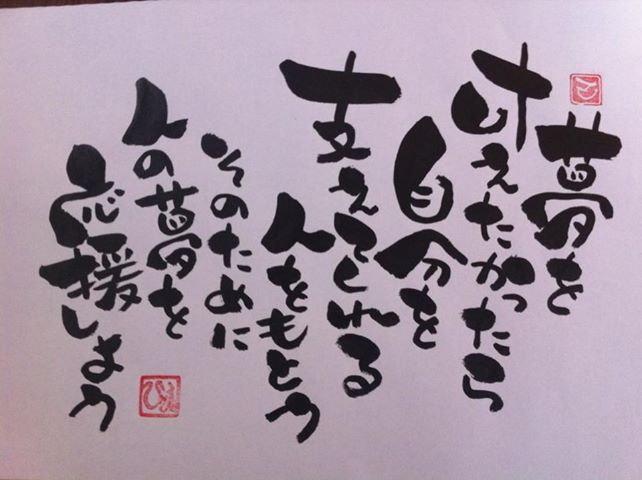 夢を
叶えたかったら
自分を
支えてくれる
人をもとう
そのために
人の夢を
応援しよう